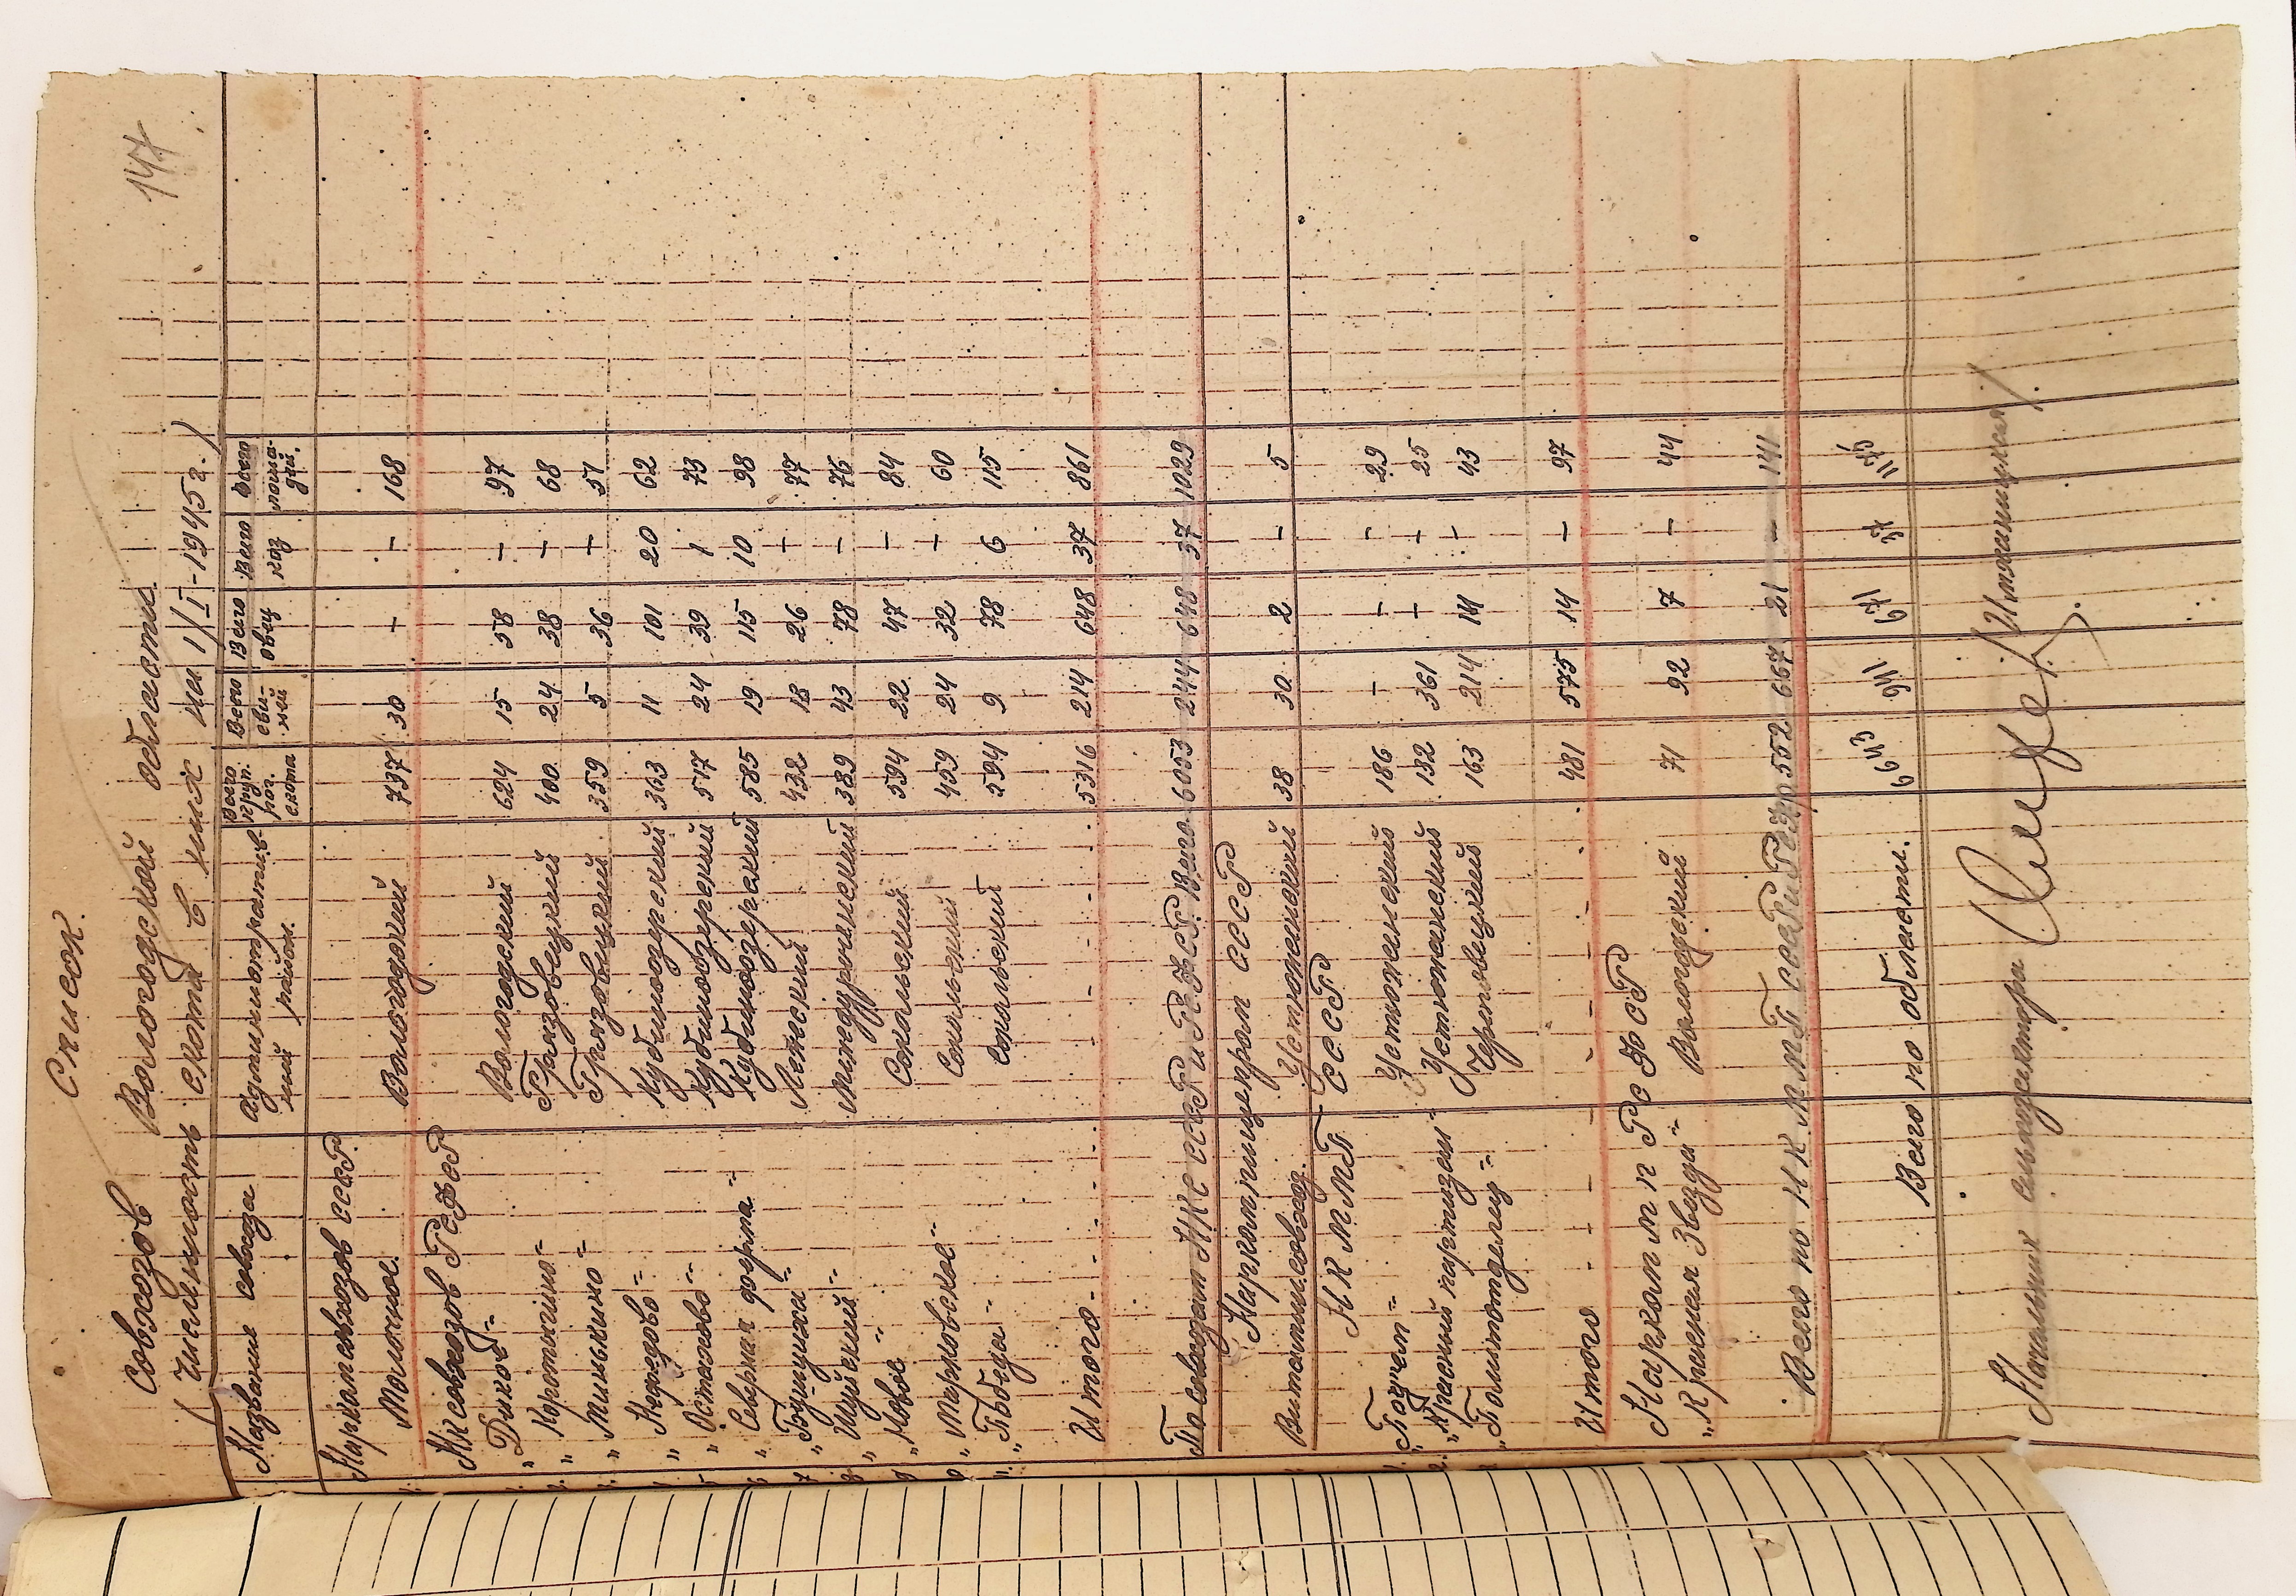 147
Список
совхозов Вологодской области
(численность скота в них на 1/I-1945 г.)
Название совхоза Административный район Всего круп. рог. скота Всего свиней Всего овец Всего коз Всего лошадей.
Наркомсовхозов СССР
1. Молочное. Вологодский 737 30 - - 168
НК совхозов РСФСР
1. "Дикое" Вологодский 624 15 58 - 97
2. "Коротыгино" Грязовецкий 400 24 38 - 68
3. "Минькино" Грязовецкий 359 5 36 - 51
4. " -" Кубиноозерский 363 11 101 20 62
5. "Остахово" Кубиноозерский 517 24 39 1 73
6. "Северная ферма" Кубиноозерский 585 19 115 10 98
7. " -" 432 18 26 - 77
8. "Шуйский" Междуреченский 389 43 78 - 76
9. "Новое" Сокольский 594 22 47 - 84
10. "Марковское" Сокольский 459 24 32 - 60
11. "Победа" Сокольский 594 9 78 6 115
Итого - - - - 5316 214 648 37 861
По совхозам НКС СССР и РСФСР. Всего 6053 244 648 37 1029
Наркомпищепром СССР
1. Витаминсовхоз. Устюженский 38 30 2 - 5
НКММП СССР
1. " -" Устюженский 186 - - - 29
2. "Красный партизан" Устюженский 132 361 - - 25
3. "Политотделец" Череповецкий 163 214 14 - 43
Итого - - - 481 575 14 - 97
Нарком М П РСФСР
"Красная Звезда" Вологодский 71 92 7 - 44
Всего по НКММП СССР и РСФСР 552 667 21 - 141
Всего по области. 6643 941 671 37 1175
Начальник сельхозсектора